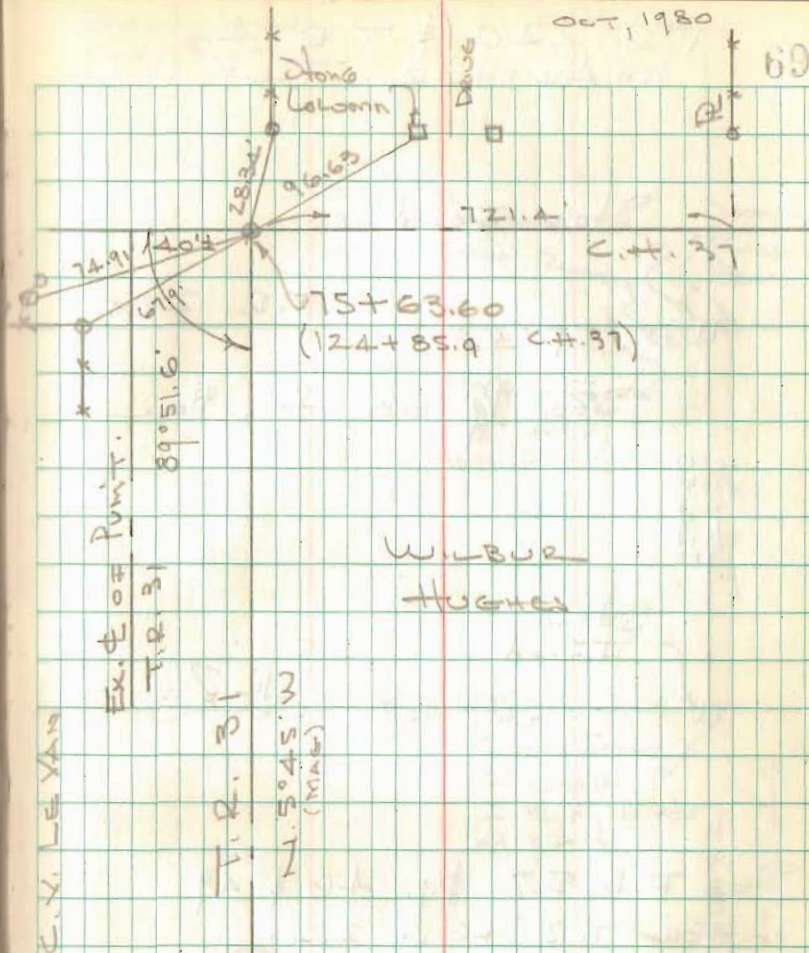 OCT, 1980
69
Stone
Column
DRIVE
28.34'
96.63
721.4'
C.H. 37
74.91
40'±
67.9'
75+63.60
(124+85.9 C.H. 37)
89°51.6'
Ex. ℄ OF Pvm'T.
T.R. 31
WILBUR
HUGHES
T.R. 31
N. 5°45' W
(MAG)